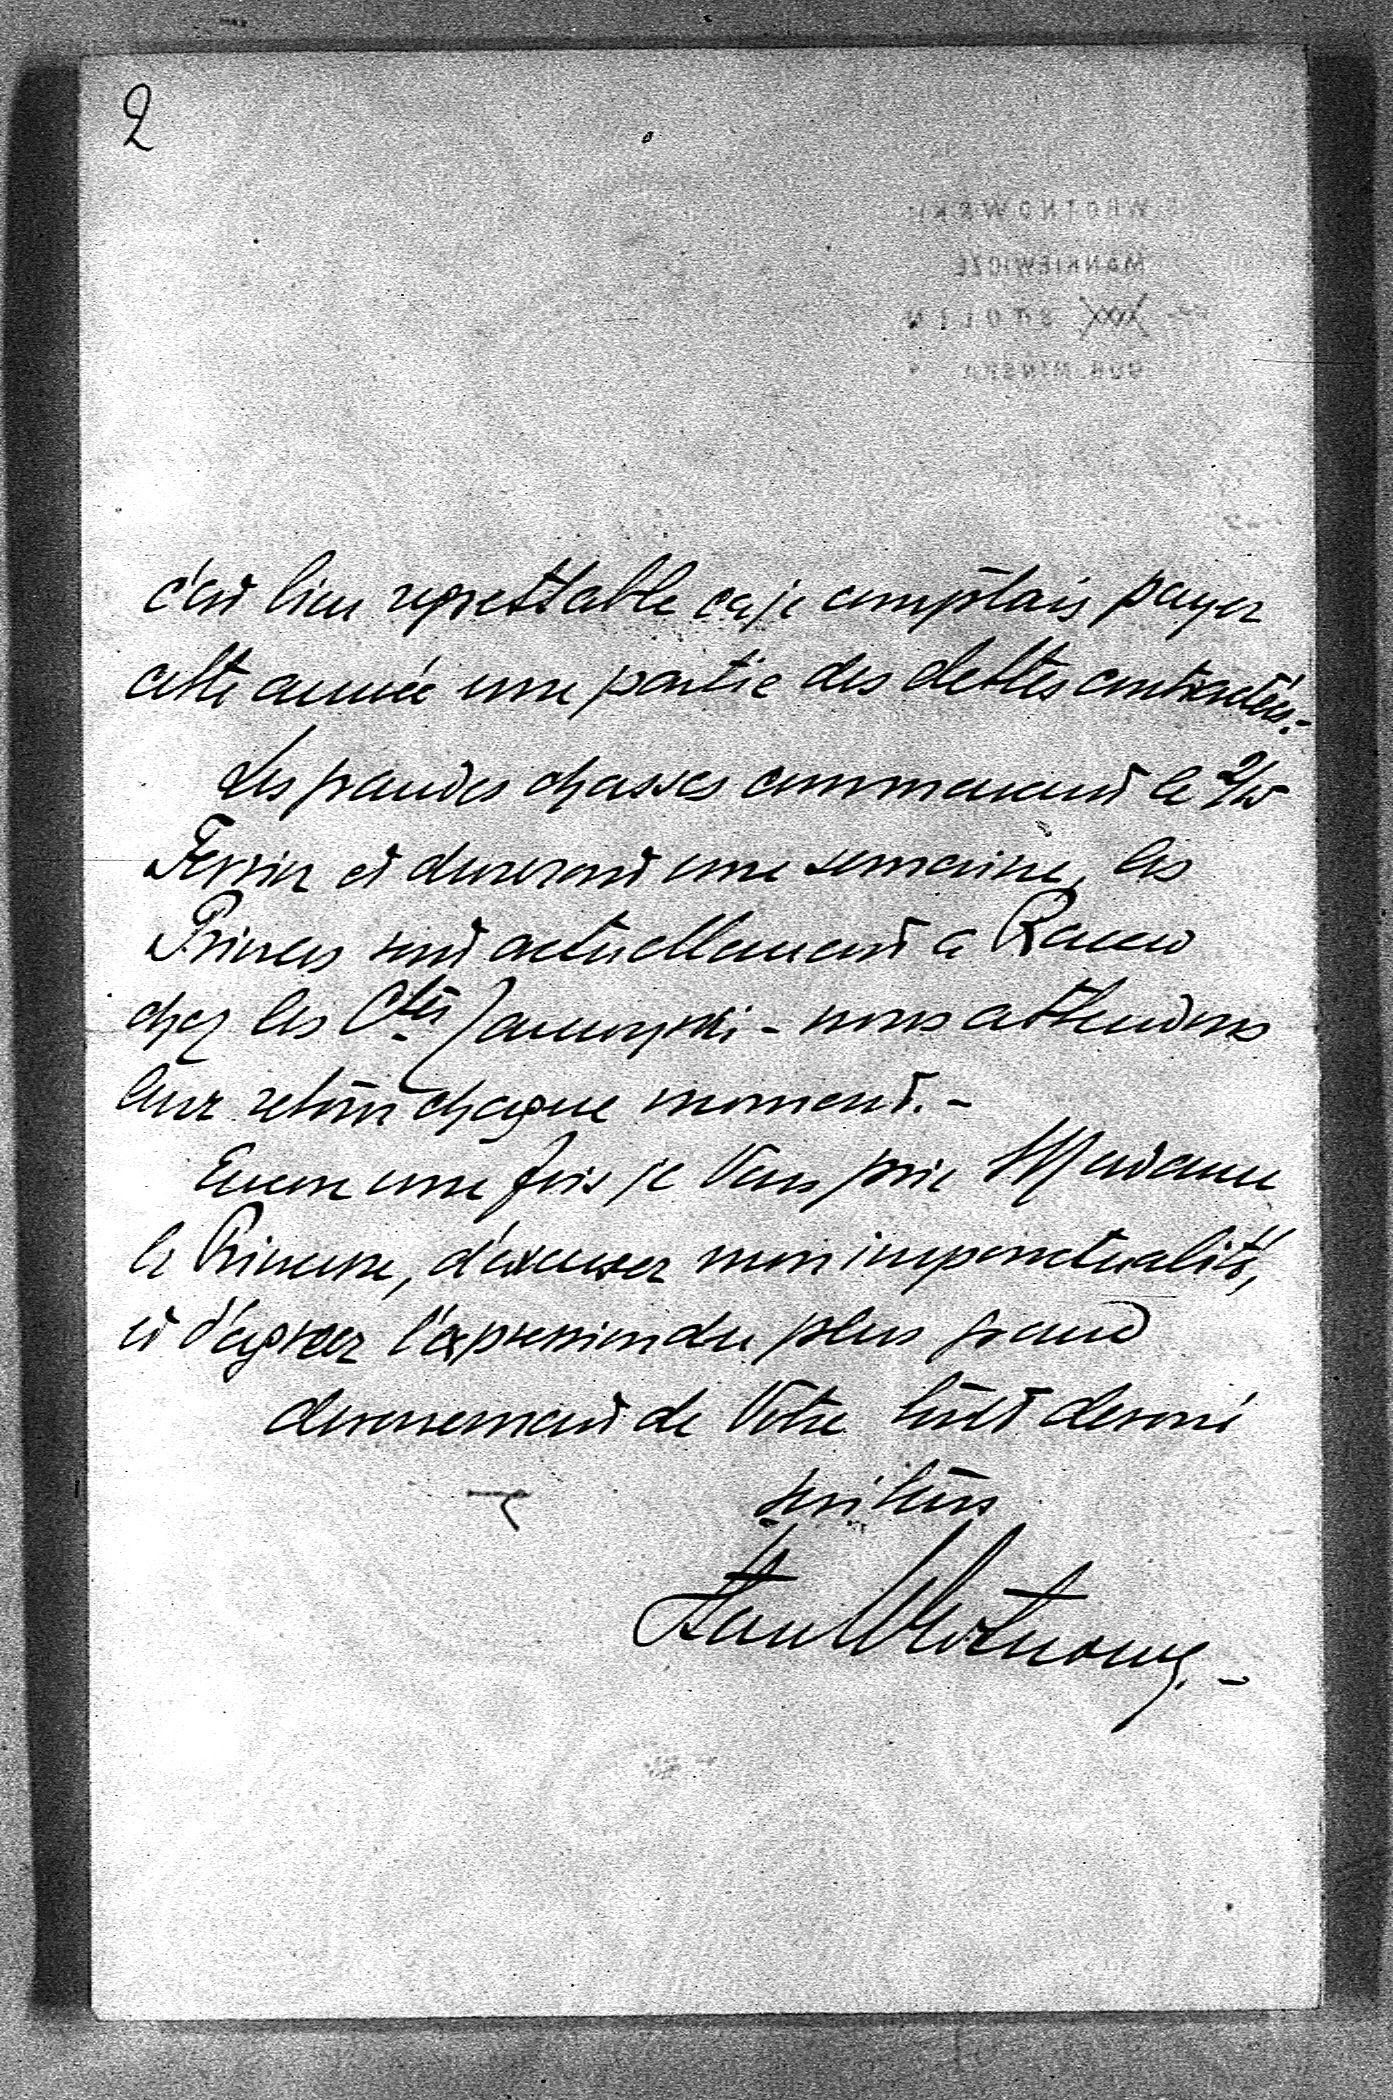 2
WROTNOWSKI
MANKIEWICZE
STOLIN
GUB. MIŃSKA
c'est bien regrettable car je comptais payer
cette année une partie des dettes contractées.-
Les grandes chasses commencent le 2/15
et dureront une semaine, les
Princes sont actuellement a
chez les Ctes Zamoyski - nous attendons
leur retour chaque moment.-
Encore une fois je Vous prie Madame
la Princesse, d'excuser mon imponctualité,
et d'agréer l'expression du plus grand
devouement de Votre tout devoué
serviteur
Stan Wrotnowski.-